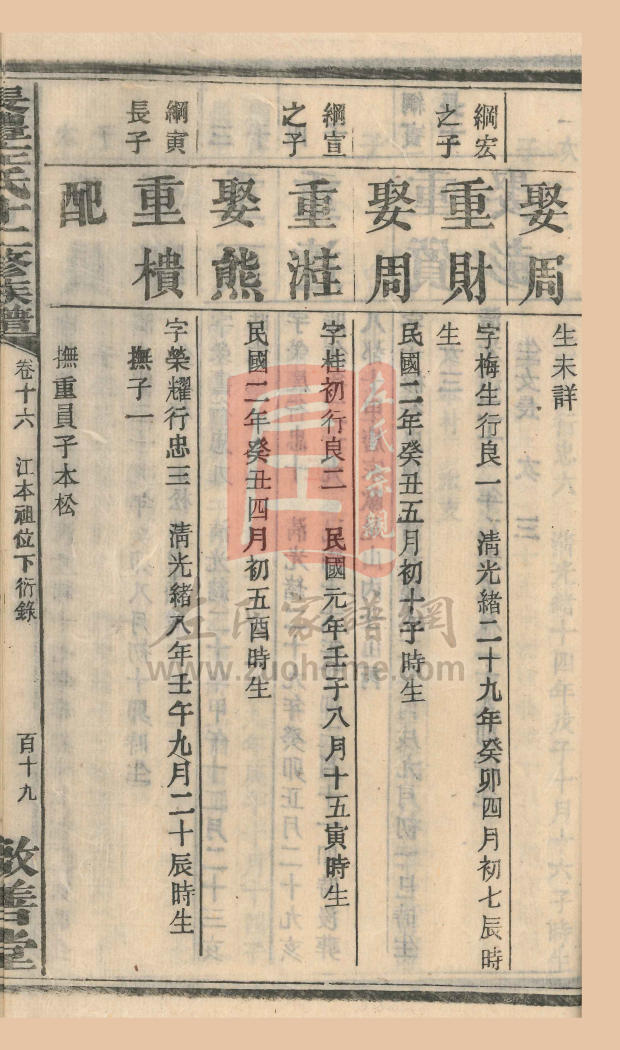 娶周
生未詳
綱宏之子
重財
字梅生行良一 清光緒二十九年癸卯四月初七辰時
生
娶周
民國二年癸丑五月初十子時生
綱宣之子
重溎
字桂初行良二 民國元年壬子八月十五寅時生
娶熊
民國二年癸丑四月初五酉時生
綱寅長子
重樻
字榮耀行忠三 清光緒八年壬午九月二十辰時生
撫子一
配
撫重員子本松
卷十六 江本祖位下衍錄 百十九
敦善堂
左氏家譜網
www.zuohome.com